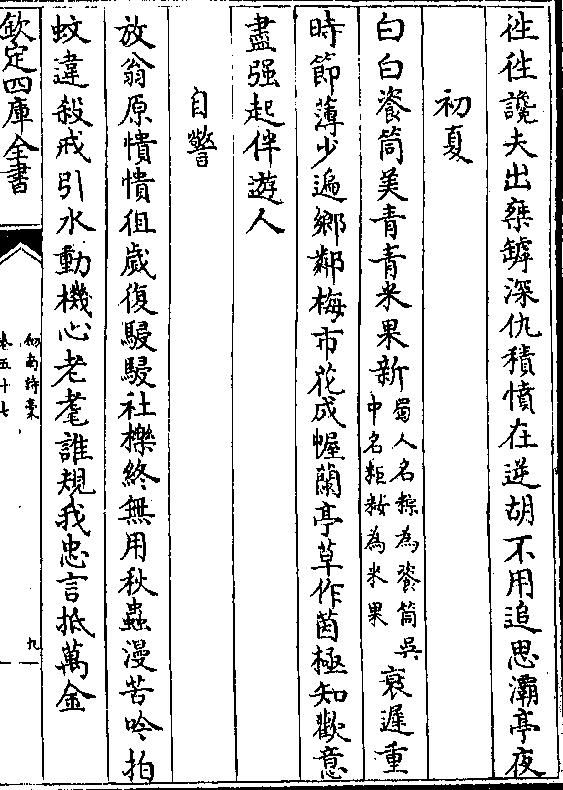 徃徃讒夫出椉罅深仇積憤在逆胡不用追思灞亭夜
初夏
白白餈筒美青青米果新
蜀人名粽為餈筒吳
中名粔籹為米果
衰遲重
時節薄少遍鄉鄰梅市花成幄蘭亭草作茵極知歡意
盡强起伴遊人
自警
放翁原憒憒徂歲復駸駸社櫟終無用秋蟲漫苦吟拍
蚊違殺戒引水動機心老耄誰規我忠言抵萬金
欽定四庫全書
劍南詩稾
卷五十七
九